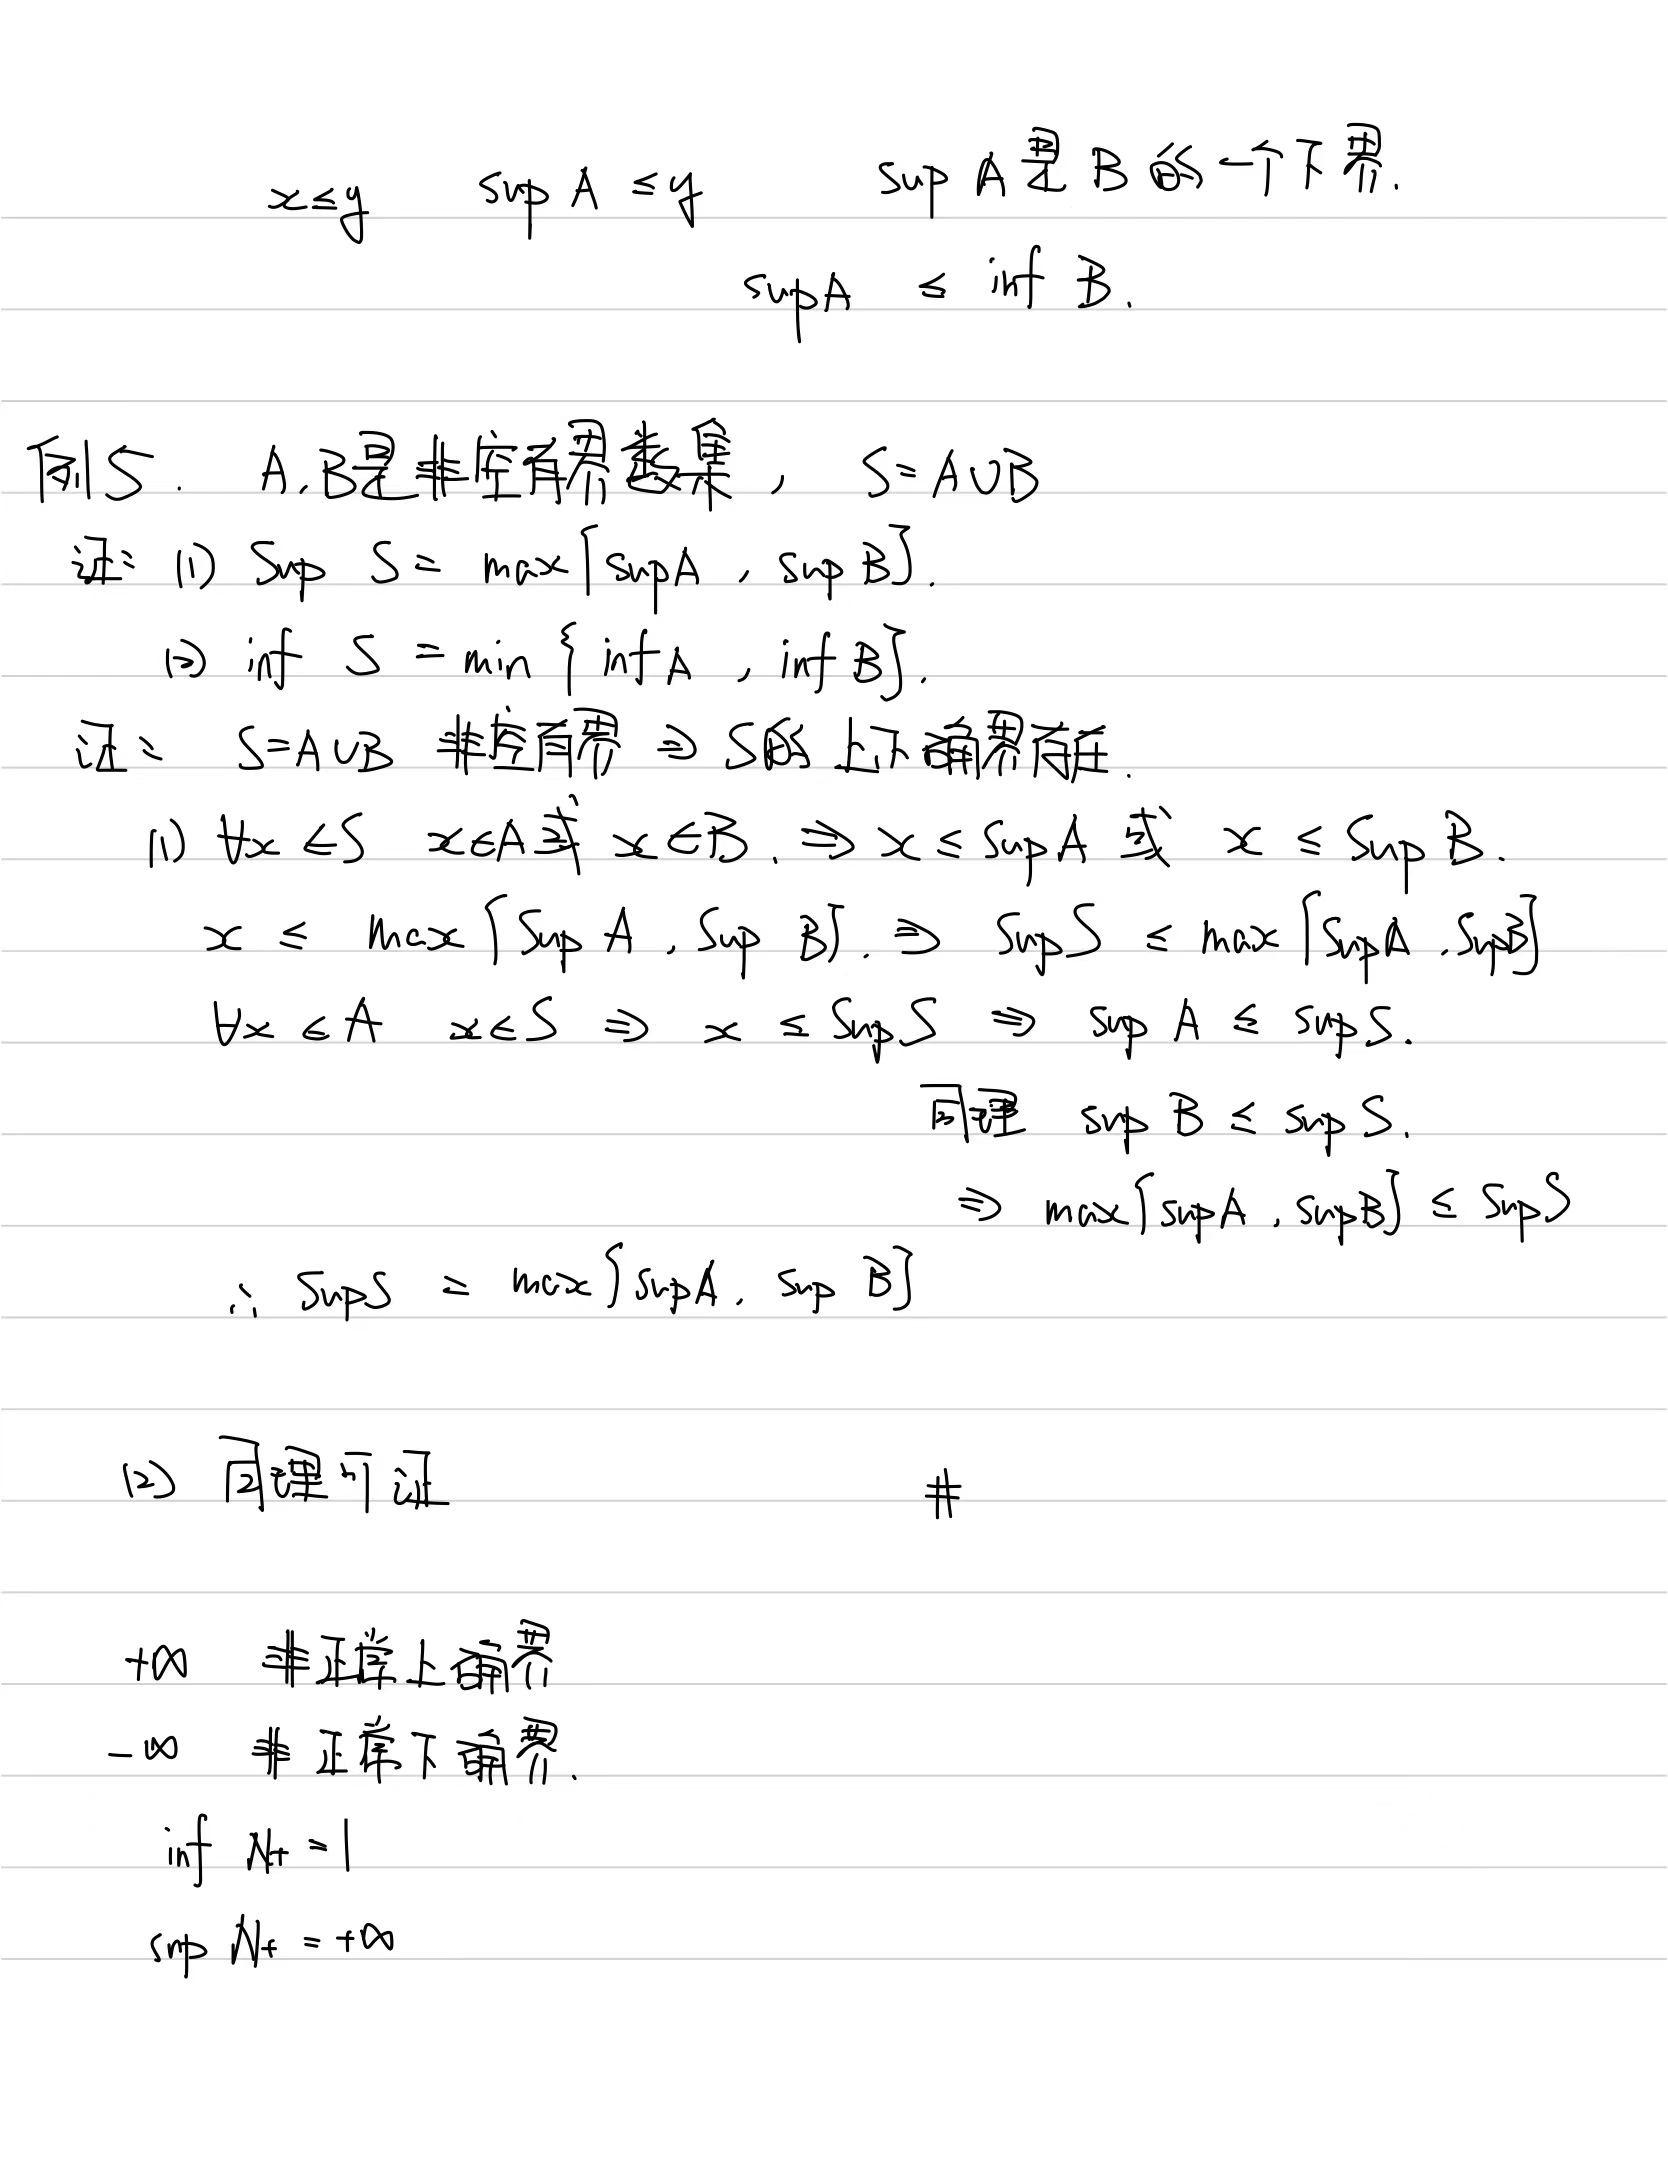 x≤y sup A ≤y sup A是B的一个下界.
sup A ≤ inf B.
例5. A,B是非空有界数集, S=A∪B
证: (1) Sup S = max{sup A, sup B}.
(2) inf S = min {inf A, inf B}.
证: S=A∪B 非空有界 ⇒ S的上下确界存在.
(1) ∀x∈S x∈A或 x∈B. ⇒ x ≤ Sup A 或 x ≤ Sup B.
x ≤ max {Sup A, Sup B}. ⇒ Sup S ≤ max {Sup A, Sup B}
∀x∈A x∈S ⇒ x ≤ Sup S ⇒ sup A ≤ sup S.
同理 sup B ≤ sup S.
⇒ max{sup A, sup B} ≤ Sup S
∴ Sup S = max{sup A, sup B}
(2) 同理可证 #
+∞ 非正常上确界
-∞ 非正常下确界.
inf N+ = 1
sup N+ = +∞